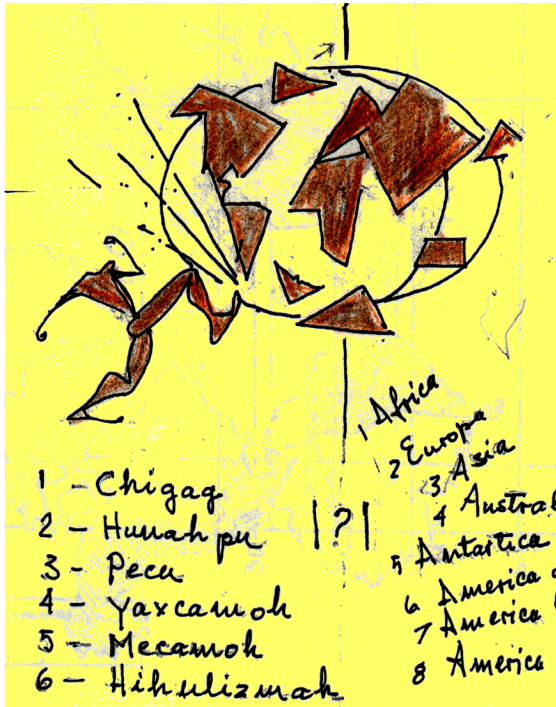 1 - Chigag
2 - Hunah pu
3 - Pecu
4 - Yaxcamoh
5 - Mecamoh
6 - Hihulizmah
|?|
1 Africa
2 Europa
3 Asia
4 Austral
5 Antartica
6 America
7 America
8 America